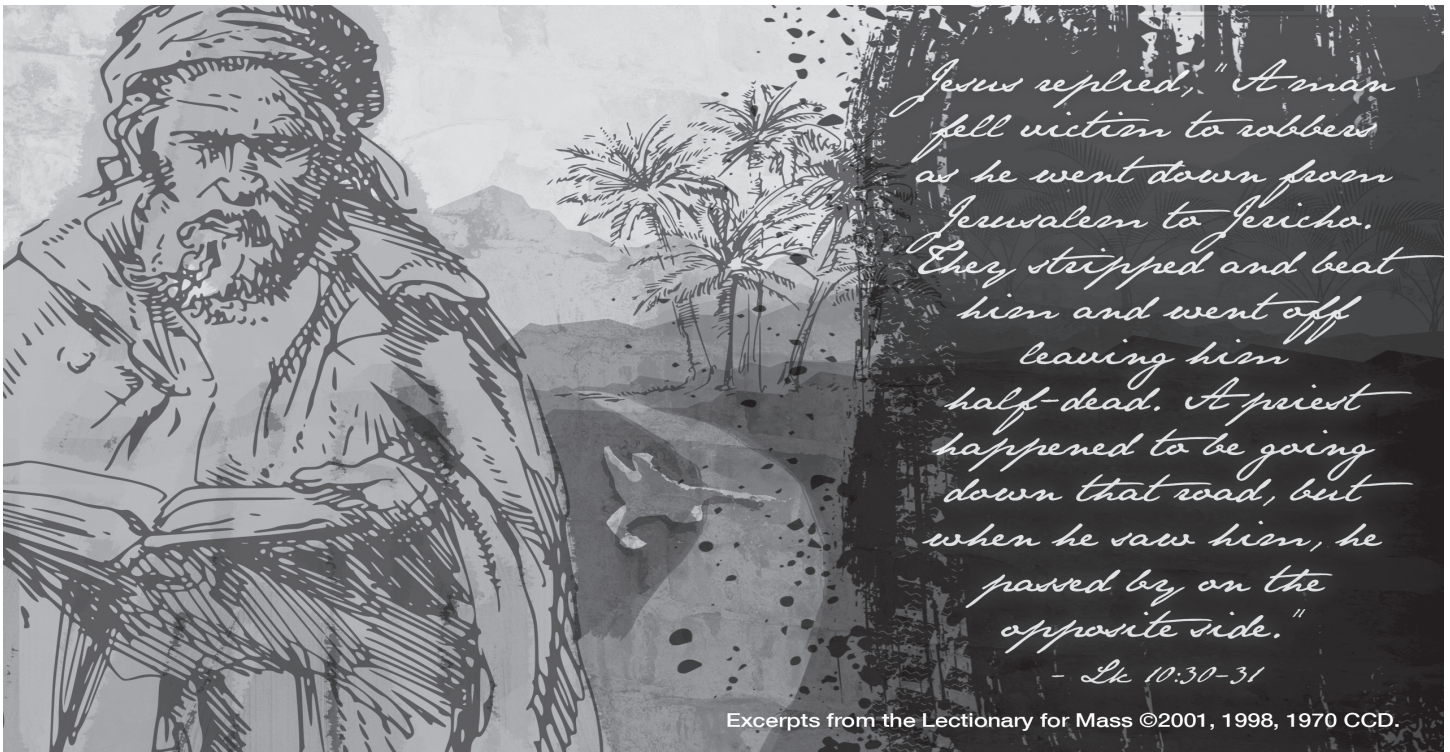 Jesus replied, "A man
fell victim to robbers
as he went down from
Jerusalem to Jericho.
They stripped and beat
him and went off
leaving him
half-dead. A priest
happened to be going
down that road, but
when he saw him, he
passed by on the
opposite side."
- Lk 10:30-31
Excerpts from the Lectionary for Mass ©2001, 1998, 1970 CCD.